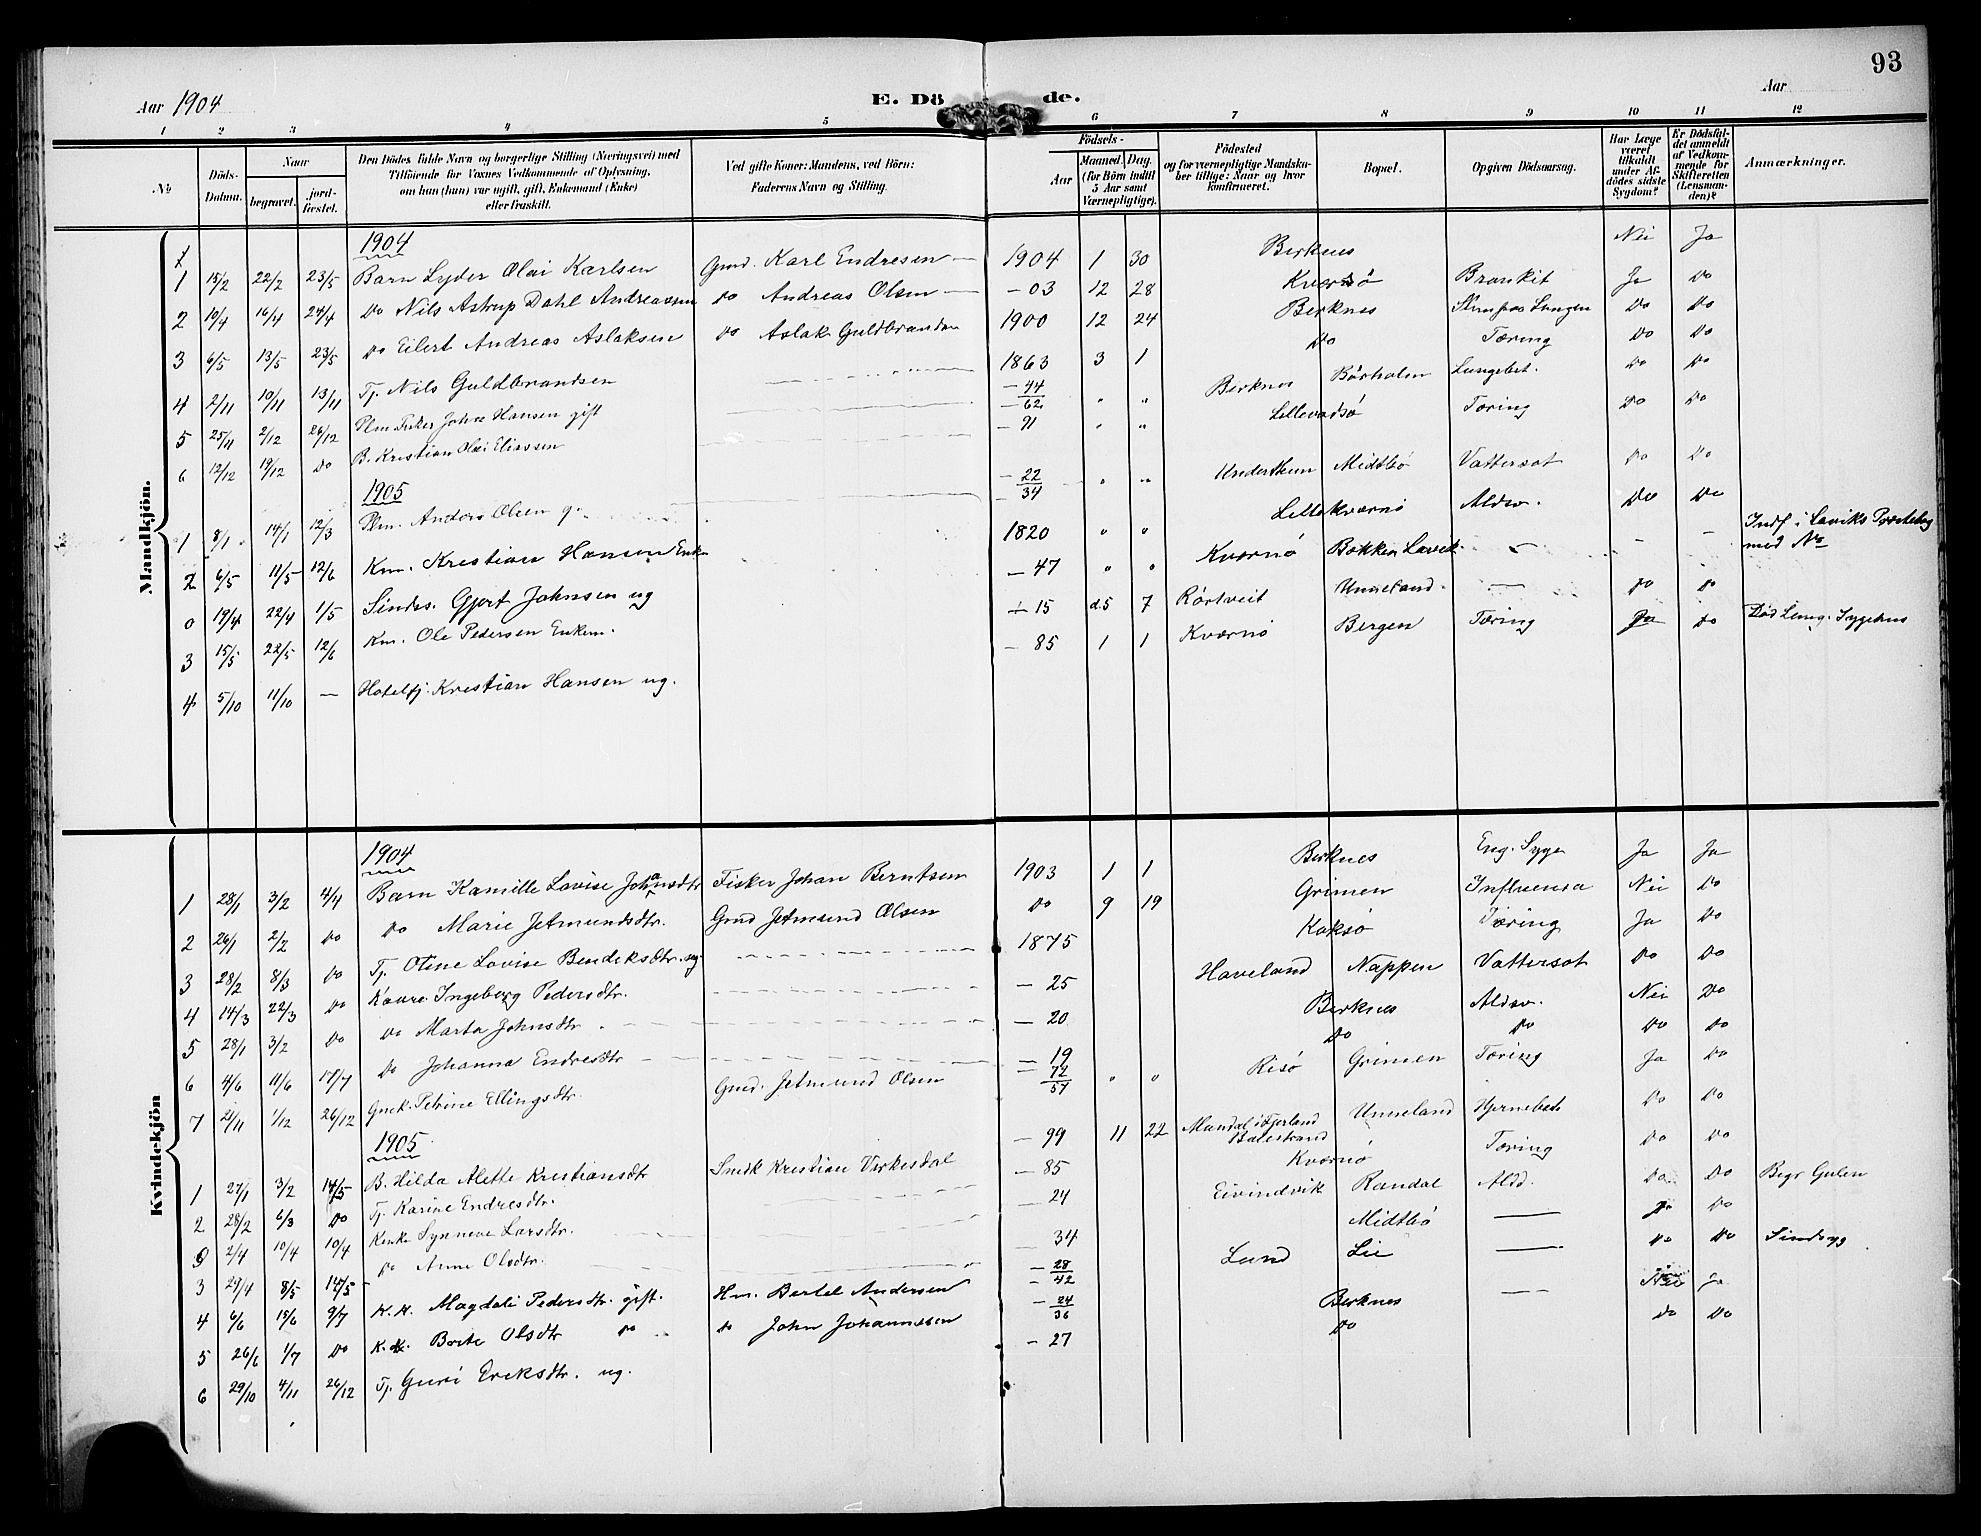 93
Aar 1904
E. Dö de.
Aar
1 2 3 4 5 6 7 8 9 10 11 12
№
Döds-Datum.
Naar
begravet.
jord-fæstet.
Den Dödes fulde Navn og borgerlige Stilling (Næringsvei) med Tilföiende for Voxnes Vedkommende af Oplysning, om han (hun) var ugift, gift, Enkemand (Enke) eller fraskilt.
Ved gifte Koner: Mandens, ved Börn: Faderens Navn og Stilling.
Födsels-
Aar
Maaned. Dag.
(for Börn indtil 5 Aar samt Værnepligtige).
Födested og for værnepligtige Mandskaber tillige: Naar og hvor konfirmeret.
Bopæl.
Opgiven Dödsaarsag.
Har Læge været tilkaldt under Afdödes sidste Sygdom?
Er Dödsfaldet anmeldt af Vedkommende for Skifteretten (Lensmanden)?
Anmærkninger.
Mandkjön.
1904
1 15/2 22/2 23/5 Barn Lyder Olai Karlsen Gmd. Karl Endresen 1904 1 30 Berknes Nei Ja
2 10/4 16/4 24/4 Do Nils Astrup Dahl Andreassen Do Andreas Olsen - 03 12 28 Kværnø Bronkit Ja Do
3 6/5 13/5 23/5 Do Eilert Andreas Aslaksen Do Aslak Guldbrandsen 1900 12 24 Berknes Do Do
4 2/11 10/11 13/11 Tj. Nils Guldbrandsen 1863 3 1 Do Tæring Do Do
5 25/11 2/12 26/12 Plm Fisker Johan Hansen gift - 44 - 62 " " Berknes Börholm Lungebet. Do Do
6 12/12 19/12 Do B. Kristian Olai Eliassen - 91 " " Lillevadsö Tæring Do Do
1905
1 8/1 14/1 12/3 Plm. Anders Olsen g. - 22 - 34 " " Undertun Midtbö Vattersot Do Do
2 6/5 11/5 12/6 Km. Kristian Hansen Enkm 1820 " " Lille kværnö Aldsv. Do Do
0 19/4 22/4 1/5 Sindss. Gjert Johnsen ug - 47 " " Kværnö Bakken Lavik - - - Indf i Laviks Prestebog med No
3 15/5 22/5 12/6 Km. Ole Pedersen Enkem. - 15 d.5 7 Rörtveit Unneland. - Do Do
4 5/10 11/10 - Hotelfj. Kristian Hansen ug. - 85 1 1 Kværnö Bergen Tæring Ja Do Död Lung. Sygehus
Kvindekjön
1904
1 28/1 3/2 4/4 Barn Kamille Lovise Johansdtr Fisker Johan Berntsen 1903 1 1 Berknes Eng. Syge Ja Ja
2 26/1 2/2 Do Do Marie Jetmundsdtr. Gmd Jetmund Olsen Do 9 19 Grimen Influensa Nei Do
3 28/2 8/3 Do Tj. Oline Lovise Bendeksdtr. ug 1875 Koksö Tæring Ja Do
4 14/3 22/3 Do Kaare. Ingeborg Pedersdtr. - 25 Haveland Nappen Vattersot Do Do
5 28/1 3/2 Do Do Marta Johnsdtr. - 20 Berknes Aldsv. Nei Do
6 4/6 11/6 17/7 Do Johanna Endresdtr - 19 Do Do Do Do
7 21/11 1/12 26/12 Gmk. Petrine Ellingsdtr. Gmd. Jetmund Olsen - 72 57 " " Risö Grimen Tæring Ja Do
1905
1 27/1 3/2 14/5 B. Hilda Alette Kristiansdtr Smedk Kristian Virkesdal - 99 11 22 Mundal i Fjerland Balestrand Unneland Hjernebet. Do Do
2 28/2 6/3 Do Tj. Karine Endresdtr. - 85 Kværnö Tæring Do Do
0 2/4 10/4 10/4 Kenke Synneve Larsdtr. - 24 Eivindvik Randal Aldd. Do Do Begr Gulen
3 29/4 8/5 14/5 Do Anne Olsdtr. - 34 Midtbö - Do
4 6/6 15/6 9/7 K.K. Magdeli Pedersdtr. gift. Hm. Bertel Andersen - 28 - 42 Lund Lie - Do Do Sindsyg
5 26/6 1/7 Do K.K. Brite Olsdtr Do Do John Johannesen - 24 36 Berknes - Nei Ja
6 29/10 4/11 26/12 Tj. Guri Eriksdtr. ug. - 27 Do Do Do